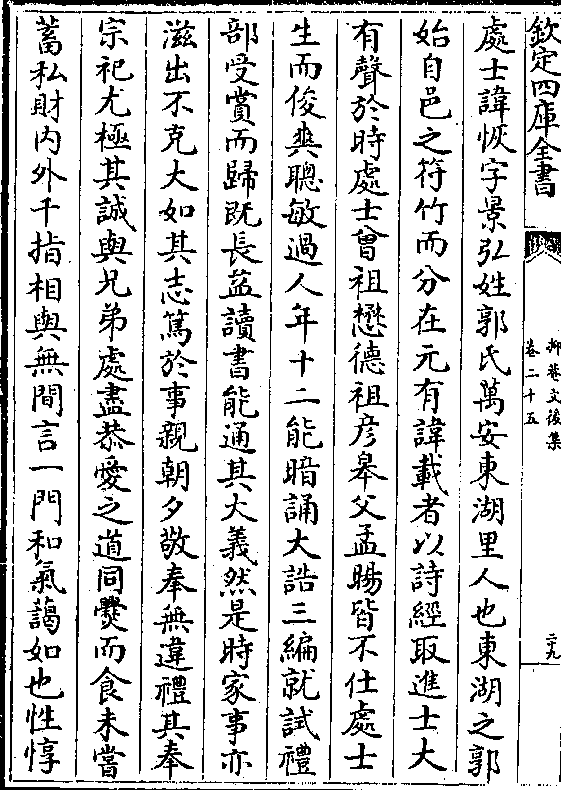 欽定四庫全書
抑菴文後集
卷二十五
二九
處士諱恢字景弘姓郭氏萬安東湖里人也東湖之郭
始自邑之符竹而分在元有諱載者以詩經取進士大
有聲於時處士曾祖懋德祖彦皋父孟賜皆不仕處士
生而俊爽聰敏過人年十二能暗誦大誥三編就試禮
部受賞而歸既長益讀書能通其大義然是時家事亦
滋出不克大如其志篤於事親朝夕敬奉無違禮其奉
宗祀尤極其誠與兄弟處盡恭愛之道同爨而食未嘗
蓄私財内外千指相與無間言一門和氣藹如也性惇